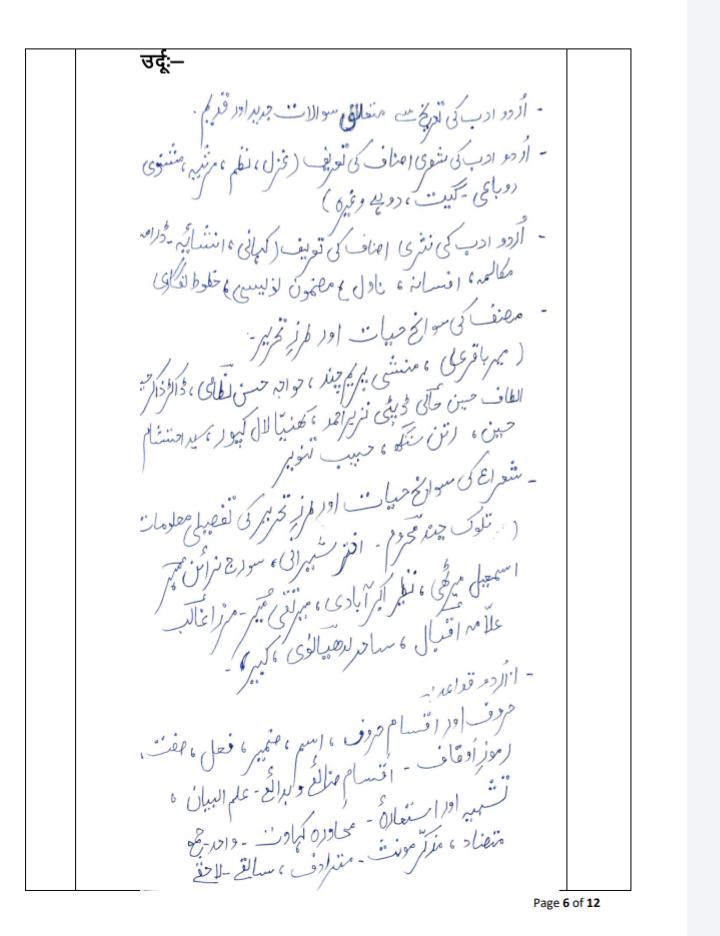 उर्दू:–
- اُردو ادب کی تاریخ سے متعلق سوالات جدید اور قدیم.
- اُردو ادب کی شعری اصناف کی تعریف (غزل، نظم، مرثیہ، مثنوی
روباعی - گیت، دوہے وغیرہ)
- اُردو ادب کی نثری اصناف کی تعریف (کہانی، انشائیہ - ڈرامہ
مکالمہ، افسانہ، ناول، مضمون نویسی، خطوط نگاری
- مصنف کی سوانح حیات اور طرزِ تحریر -
(میر باقر علی، منشی پریم چند، خواجہ حسن نظامی، ڈاکٹر ذاکر
الطاف حسین حالی ڈپٹی نزیر احمد، کنہیّا لال کپور، سید احتشام
حسین، رتن سنگھ، حبیب تنویر
- شعراء کی سوانح حیات اور طرزِ تحریر کی تفصیلی معلومات
(تلوک چند محروم - اختر شیرانی، سورج نرائن مہر
اسمعیل میرٹھی، نظیر اکبرآبادی، میر تقی میر - مرزا غالب
علاّمہ اقبال، ساحر لدھیانوی، کبیر) -
- اُردو قواعد :-
حروف اور اقسام حروف، اسم، ضمیر، فعل، صفت،
رموزِ اوقاف - اقسام صنائع و بدائع - علم البیان،
تشبیہ اور استعارہ - محاورہ کہاوت - واحد - جمع
متضاد، مذکّر مونث - مترادف، سابقے - لاحقے
Page 6 of 12